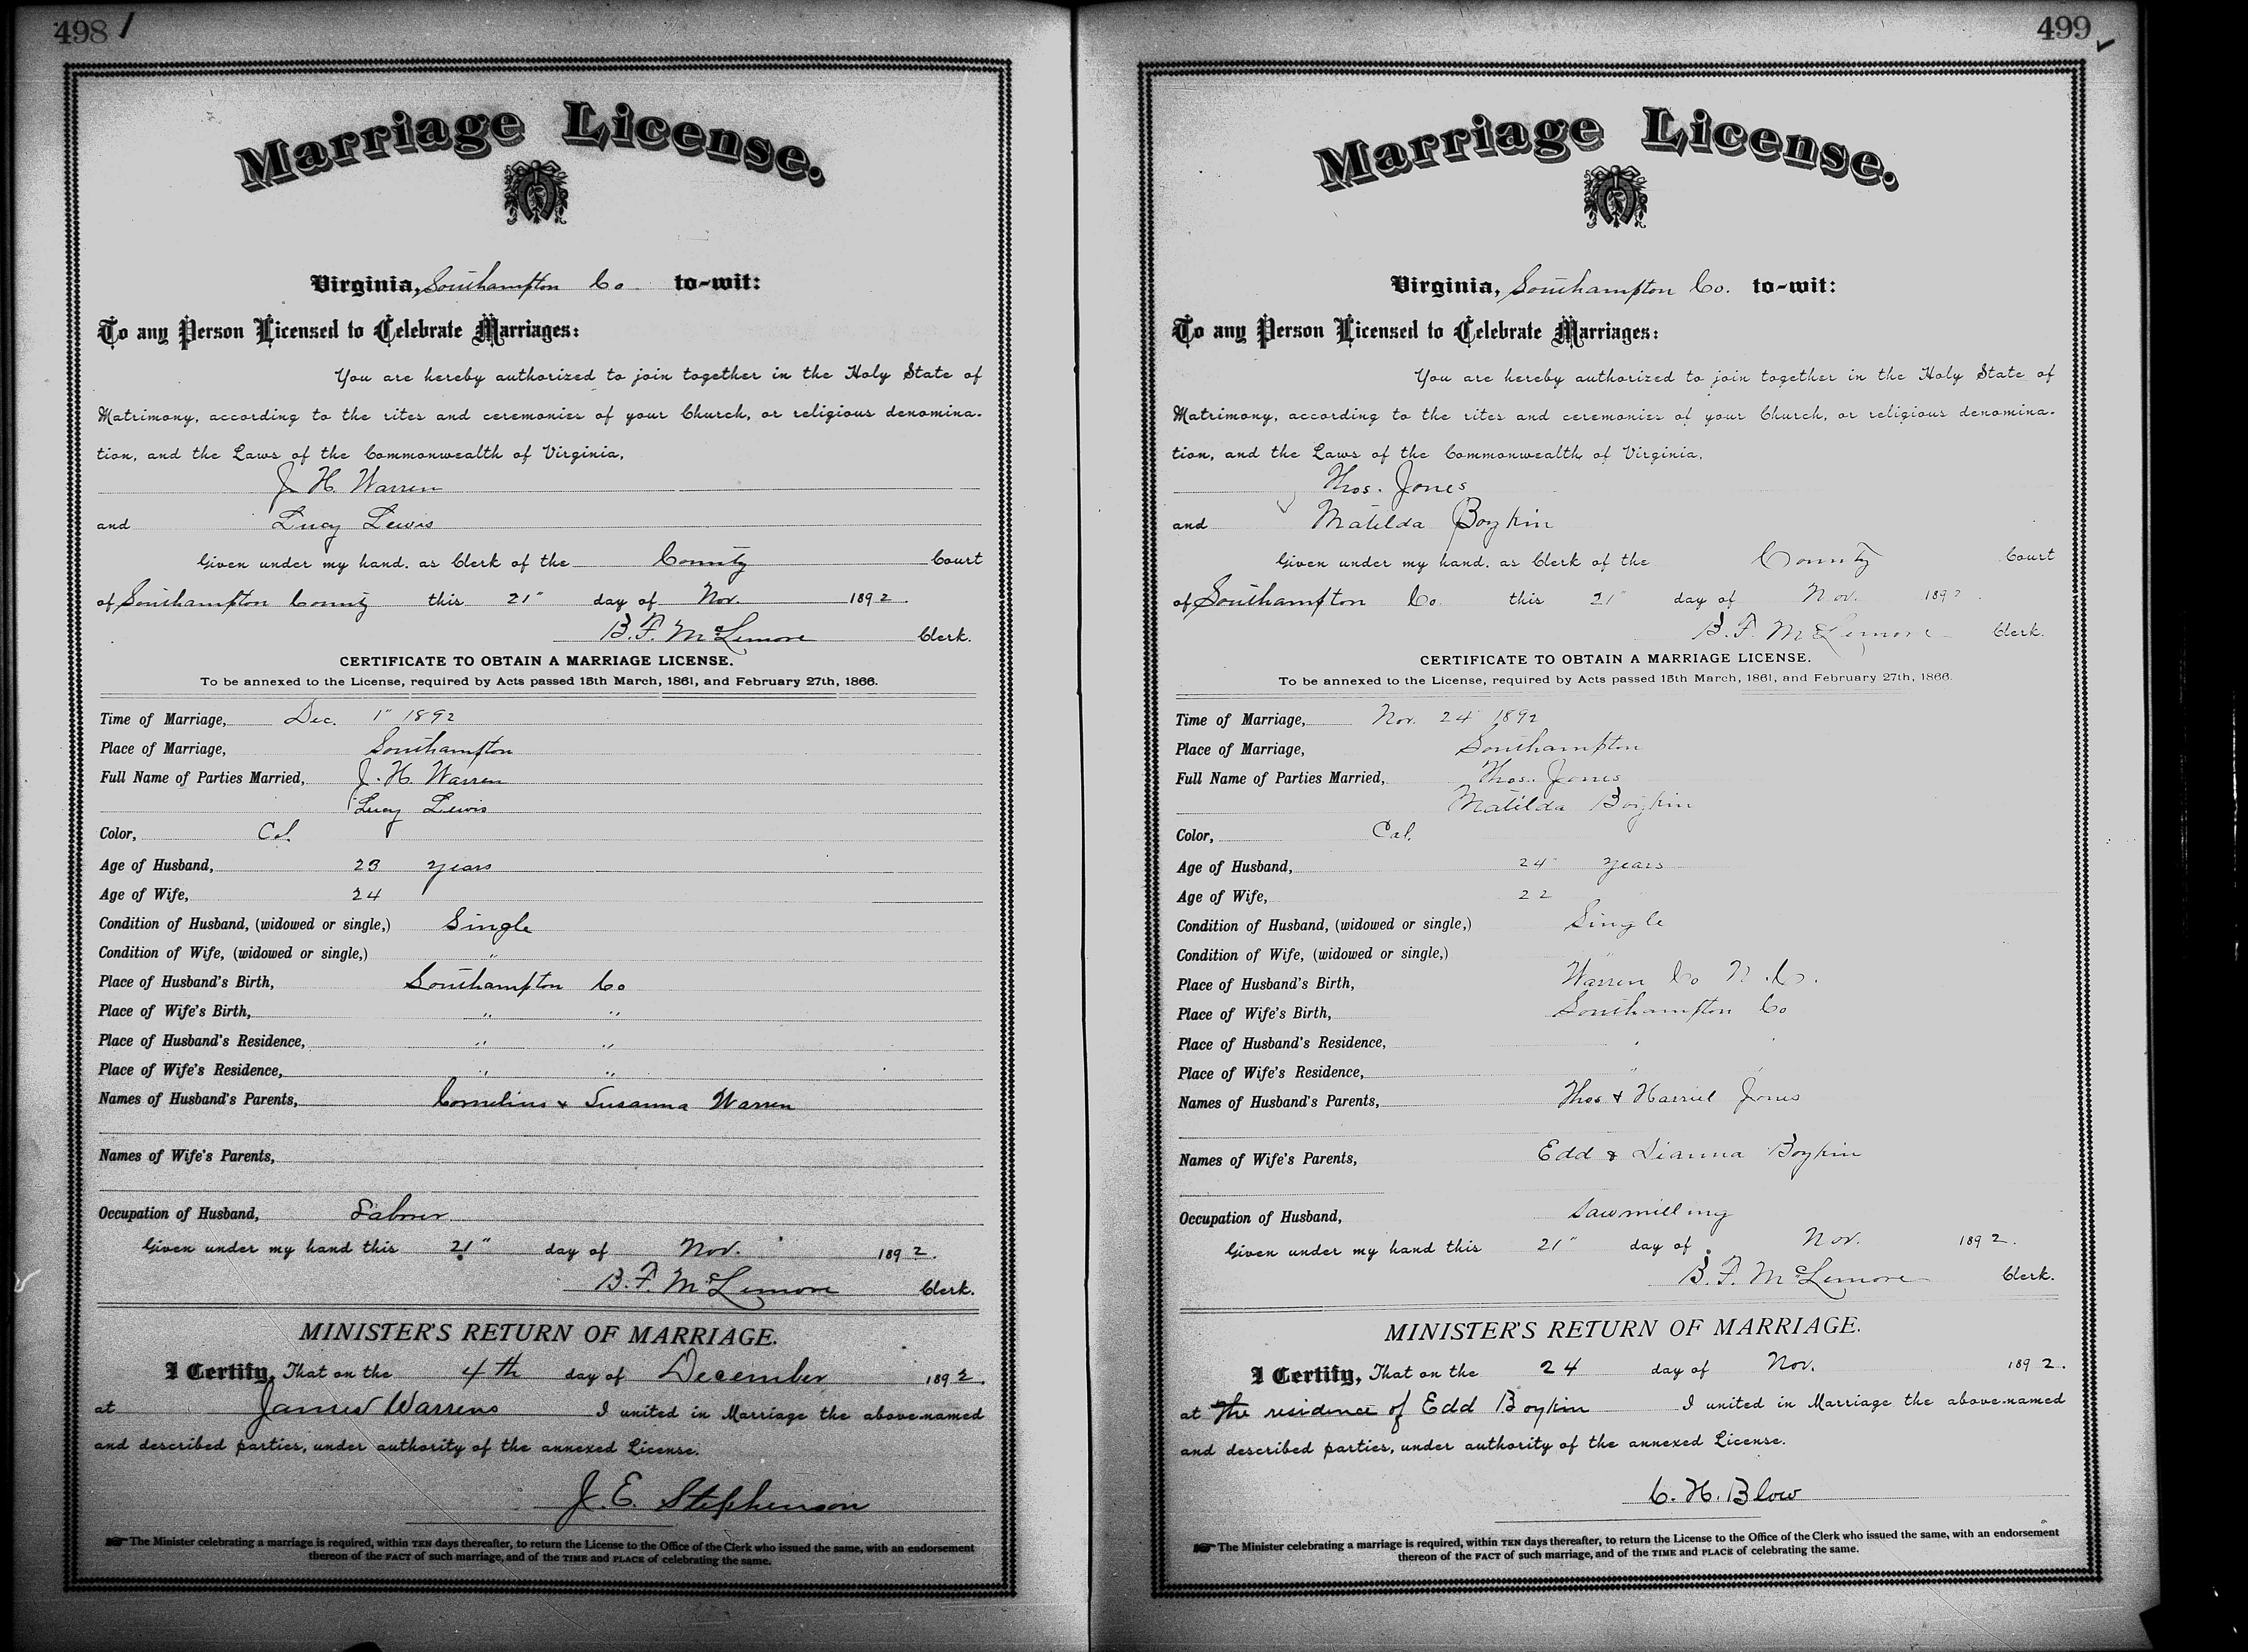 498
Marriage License.
Virginia, Southampton Co. to-wit:
To any Person Licensed to Celebrate Marriages:
You are hereby authorized to join together in the Holy State of
Matrimony, according to the rites and ceremonies of your Church, or religious denomina-
tion, and the Laws of the Commonwealth of Virginia,
J. H. Warren
and Lucy Lewis
Given under my hand, as Clerk of the County Court
of Southampton County this 21" day of Nov. 1892.
B. F. McLemore Clerk.
CERTIFICATE TO OBTAIN A MARRIAGE LICENSE.
To be annexed to the License, required by Acts passed 15th March, 1861, and February 27th, 1866.
Time of Marriage, Dec. 1" 1892
Place of Marriage, Southampton
Full Name of Parties Married, J. H. Warren
Lucy Lewis
Color, Col.
Age of Husband, 23 years
Age of Wife, 24
Condition of Husband, (widowed or single,) Single
Condition of Wife, (widowed or single,) "
Place of Husband's Birth, Southampton Co
Place of Wife's Birth, " "
Place of Husband's Residence, " "
Place of Wife's Residence, " "
Names of Husband's Parents, Cornelius & Susanna Warren
Names of Wife's Parents,
Occupation of Husband, Labour
Given under my hand this 21" day of Nov. 1892.
B. F. McLemore Clerk.
MINISTER'S RETURN OF MARRIAGE.
I Certify, That on the 4th day of December 1892.
at James Warrens I united in Marriage the above-named
and described parties, under authority of the annexed License.
J. E. Stephenson
The Minister celebrating a marriage is required, within TEN days thereafter, to return the License to the Office of the Clerk who issued the same, with an endorsement
thereon of the FACT of such marriage, and of the TIME and PLACE of celebrating the same.
499
Marriage License.
Virginia, Southampton Co. to-wit:
To any Person Licensed to Celebrate Marriages:
You are hereby authorized to join together in the Holy State of
Matrimony, according to the rites and ceremonies of your Church, or religious denomina-
tion, and the Laws of the Commonwealth of Virginia,
Thos. Jones
and Matilda Boykin
Given under my hand, as Clerk of the County Court
of Southampton Co. this 21" day of Nov. 1892.
B. F. McLemore Clerk.
CERTIFICATE TO OBTAIN A MARRIAGE LICENSE.
To be annexed to the License, required by Acts passed 15th March, 1861, and February 27th, 1866.
Time of Marriage, Nov. 24 1892
Place of Marriage, Southampton
Full Name of Parties Married, Thos. Jones
Matilda Boykin
Color, Col.
Age of Husband, 24 years
Age of Wife, 22
Condition of Husband, (widowed or single,) Single
Condition of Wife, (widowed or single,)
Place of Husband's Birth, Warren Co N.C.
Place of Wife's Birth, Southampton Co
Place of Husband's Residence, " "
Place of Wife's Residence, " "
Names of Husband's Parents, Thos & Harriet Jones
Names of Wife's Parents, Edd & Dianna Boykin
Occupation of Husband, Sawmilling
Given under my hand this 21" day of Nov. 1892.
B. F. McLemore Clerk.
MINISTER'S RETURN OF MARRIAGE.
I Certify, That on the 24 day of Nov. 1892.
at The residence of Edd Boykin I united in Marriage the above-named
and described parties, under authority of the annexed License.
C. H. Blow
The Minister celebrating a marriage is required, within TEN days thereafter, to return the License to the Office of the Clerk who issued the same, with an endorsement
thereon of the FACT of such marriage, and of the TIME and PLACE of celebrating the same.